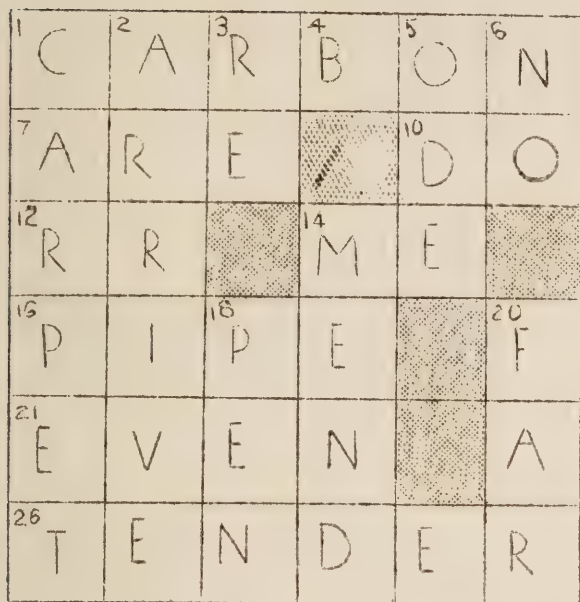 1 C 2 A 3 R 4 B 5 O 6 N
7 A R E 10 D O
12 R R 14 M E
16 P I 18 P E 20 F
21 E V E N A
26 T E N D E R